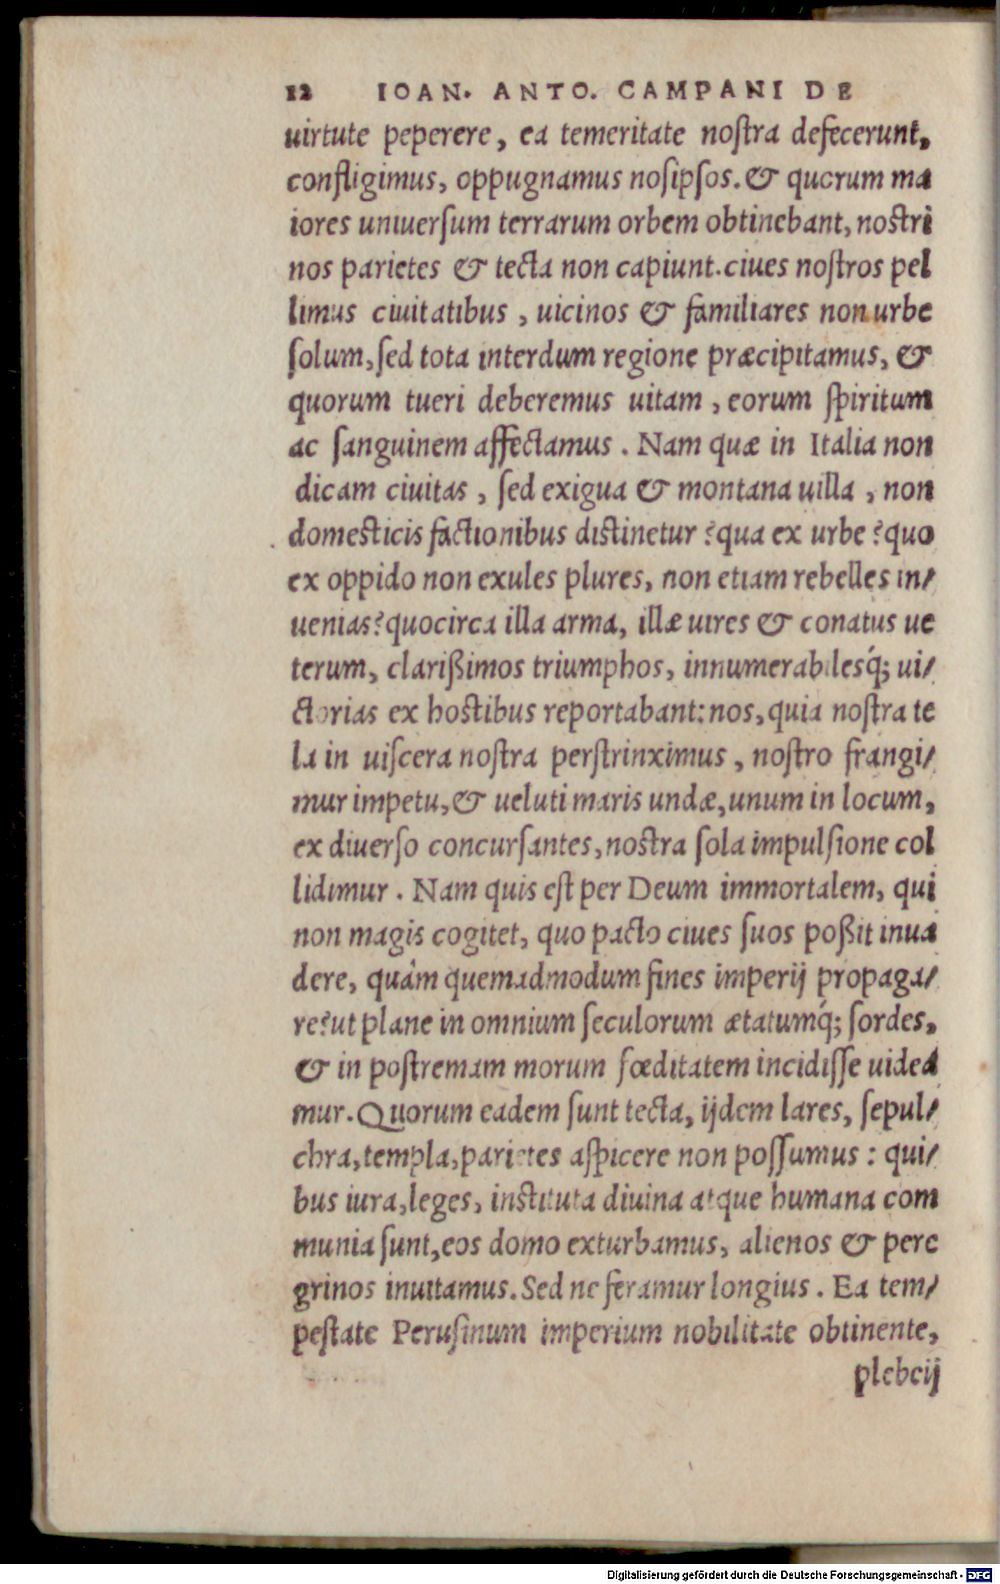 12 IOAN. ANTO. CAMPANI DE
uirtute peperere, ea temeritate noſtra defecerunt,
confligimus, oppugnamus noſipſos. & quorum ma
iores uniuerſum terrarum orbem obtinebant, noſtri
nos parietes & tecta non capiunt. ciues noſtros pel
limus ciuitatibus, uicinos & familiares non urbe
ſolum, ſed tota interdum regione præcipitamus, &
quorum tueri deberemus uitam, eorum ſpiritum
ac ſanguinem affectamus. Nam quæ in Italia non
dicam ciuitas, ſed exigua & montana uilla, non
domeſticis factionibus diſtinetur? qua ex urbe? quo
ex oppido non exules plures, non etiam rebelles in/
uenias? quocirca illa arma, illæ uires & conatus ue
terum, clarißimos triumphos, innumerabilesq́; ui/
ctorias ex hoſtibus reportabant: nos, quia noſtra te
la in uiſcera noſtra perſtrinximus, noſtro frangi/
mur impetu, & ueluti maris undæ, unum in locum,
ex diuerſo concurſantes, noſtra ſola impulſione col
lidimur. Nam quis eſt per Deum immortalem, qui
non magis cogitet, quo pacto ciues ſuos poßit inua
dere, quàm quemadmodum fines imperij propaga/
re? ut plane in omnium ſeculorum ætatumq́; ſordes,
& in poſtremam morum fœditatem incidiſſe uidea
mur. Quorum eadem ſunt tecta, ijdem lares, ſepul/
chra, templa, parietes aſpicere non poſſumus: qui/
bus iura, leges, inſtituta diuina atque humana com
munia ſunt, eos domo exturbamus, alienos & pere
grinos inuitamus. Sed ne feramur longius. Ea tem/
peſtate Peruſinum imperium nobilitate obtinente,
plebeij
Digitalisierung gefördert durch die Deutsche Forschungsgemeinschaft - DFG